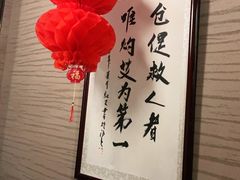 仓促救人者
唯灼艾为第一
福